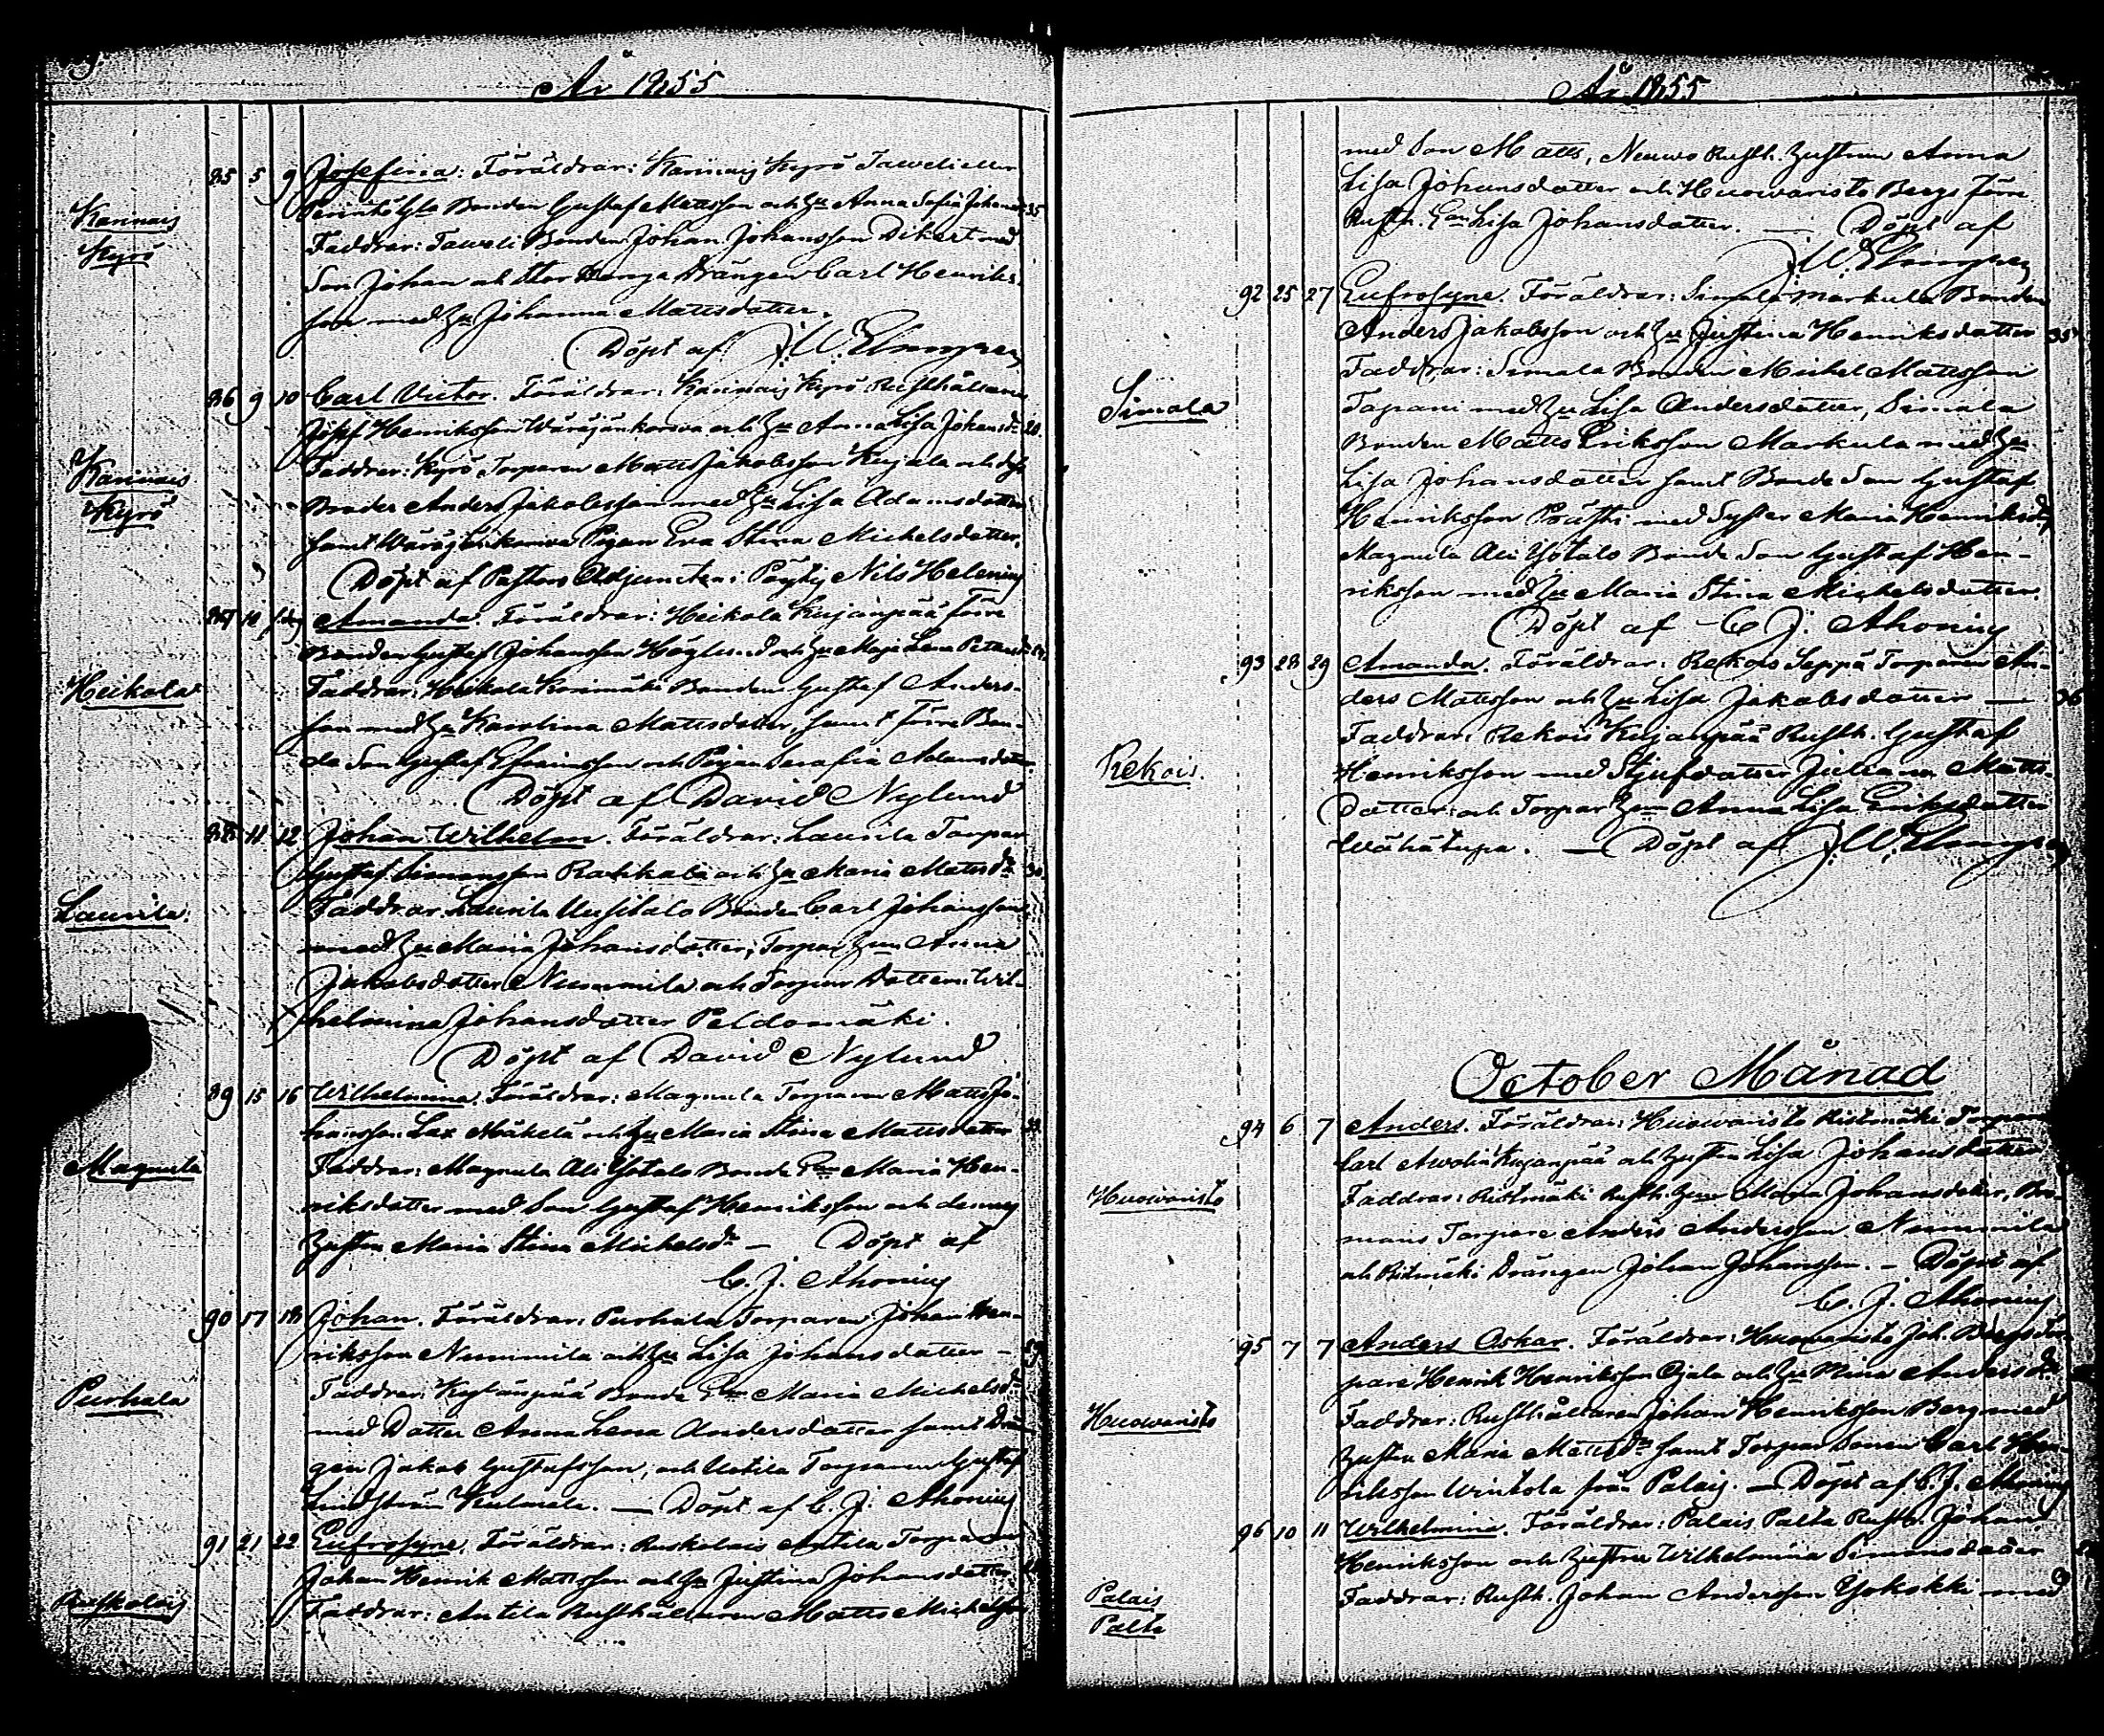 År 1855
Karinais
Kyrö
85 5 9 Josefina. Föräldrar: Karinais Kyrö Taweli eller
Bonden Gustaf Mattsson och Hu Anna Sofia Johansd 35
Faddrar: Taweli Bonden Johan Johansson Dikert med
Son Johan och Drängen Carl Henriks-
son med Hu Johanna Mattsdotter.
Döpt af J. W. Elmgren
Karinais
Kyrö
86 9 10 Carl Victor. Föräldrar: Karinais Kyrö Rusthållaren
Josef Henriksson Wäräjänkorwa och Hu Anna Lisa Johansdr 20.
Faddrar: Kyrö Torparen Matts Jakobsson Kujala och dess
Broder Anders Jakobsson med Hu Lisa Adamsdotter
samt Wäräjänkorwa Pigan Eva Stina Michelsdotter.
Döpt af Pastors Adjuncten i Pöytis Nils Helenius
Heikola
87 10 Amanda. Föräldrar: Heikola Kujanpää Förre
Bonden Gustaf Johansson Höglund och Hu Maja Lena Pettersdr
Faddrar: Heikola Korimäki Bonden Gustaf Anders-
son med Hu Karolina Mattsdotter, samt förre Bon-
de Son Gustaf Efraimsson och Pigan Serafia Adamsdotter
Döpt af David Nylund
Laurila
88 11 12 Johan Wilhelm. Föräldrar: Laurila Torpar
Gustaf Simonsson Ratikala och Hu Maria Mattsdr 30.
Faddrar: Laurila Uusitalo Bonden Carl Johansson
med Hu Maria Johansdotter, Torpar Hun Anna
Jakobsdotter Nummila och Torpar Dottern Wil-
helmina Johansdotter Peldomäki.
Döpt af David Nylund
Magnula
89 15 16 Wilhelmina. Föräldrar: Magnula Torparen Matts Jo-
hansson Lax Mäkelä och Hu Maria Stina Mattsdotter
Faddrar: Magnula Ali Yötalo Bonde Maria Hen-
riksdotter med Son Gustaf Henriksson och dennes
Hustru Maria Stina Michelsdr — Döpt af
C. J. Ahonius
Purhala
90 17 18 Johan. Föräldrar: Purhala Torparen Johan Hen-
riksson Nummila och Hu Lisa Johansdotter —
Faddrar: Kylänpää Bonde Maria Michelsdr
med Dotter Anna Lena Andersdotter samt Drän-
gen Jakob Gustafsson, och Uotila Torparen Gustaf
Lindström Kulmala. — Döpt af C. J. Ahonius
Ruskolais
91 21 22 Eufrosyne. Föräldrar: Ruskolais Antila Torparen
Johan Henrik Mattsson och Hu Justina Johansdotter
Faddrar: Antila Rusthållaren Matts Michelsson
År 1855
med Son Matts, Neuwo Rusth. Hustrun Anna
Lisa Johansdotter och Huowaristo Bergs Förre
Rusth. Lisa Johansdotter. — Döpt af
J. W. Elmgren
Simala
92 25 27 Eufrosyne. Föräldrar: Simala Markula Bonden
Anders Jakobsson och Hu Justina Henriksdotter 35
Faddrar: Simala Bonden Michel Mattsson
Tapani med Hu Lisa Andersdotter, Simala
Bonden Matts Eriksson Markula med Hu
Lisa Johansdotter samt Bonde Son Gustaf
Henriksson med Syster Maria Henriksdr
Magnula Ali Yötalo Bonde Son Gustaf Hen-
riksson med Hu Maria Stina Michelsdotter.
Döpt af C. J. Ahonius
Rekois.
93 28 29 Amanda. Föräldrar: Rekois Seppä Torparen An-
ders Mattsson och Hu Lisa Jakobsdotter — 36
Faddrar: Rekois Kujanpää Rusth. Gustaf
Henriksson med Stjufdotter Juliana Matts-
Dotter och Torpar Hun Anna Lisa Eriksdotter
Wähätupa. — Döpt af J. W. Elmgren
October Månad
Huowaristo
94 6 7 Anders. Föräldrar: Huowaristo Ristimäki Torparen
Carl Kujanpää och Hustru Lisa Johansdotter
Faddrar: Ristimäki Rusth. Hun Maria Johansdotter, Bro-
mans Torpare Anders Andersson Nummila
och Ristimäki Drängen Johan Johansson. — Döpt af
C. J. Ahonius
Huowaristo
95 7 7 Anders Oskar. Föräldrar: Huowaristo Joh. Bergs Tor-
pare Henrik Henriksson Ojala och Hu Mina Andersdr
Faddrar: Rusthållaren Johan Henriksson Berg med
Hustru Maria Mattsdr samt Torpare Sonen Carl Hen-
riksson Wintola från Palais. — Döpt af C. J. Ahonius
Palais
Palta
96 10 11 Wilhelmina. Föräldrar: Palais Palta Rusth. Johan
Henriksson och Hustru Wilhelmina Simonsdotter
Faddrar: Rusth. Johan Andersson Yökokki med